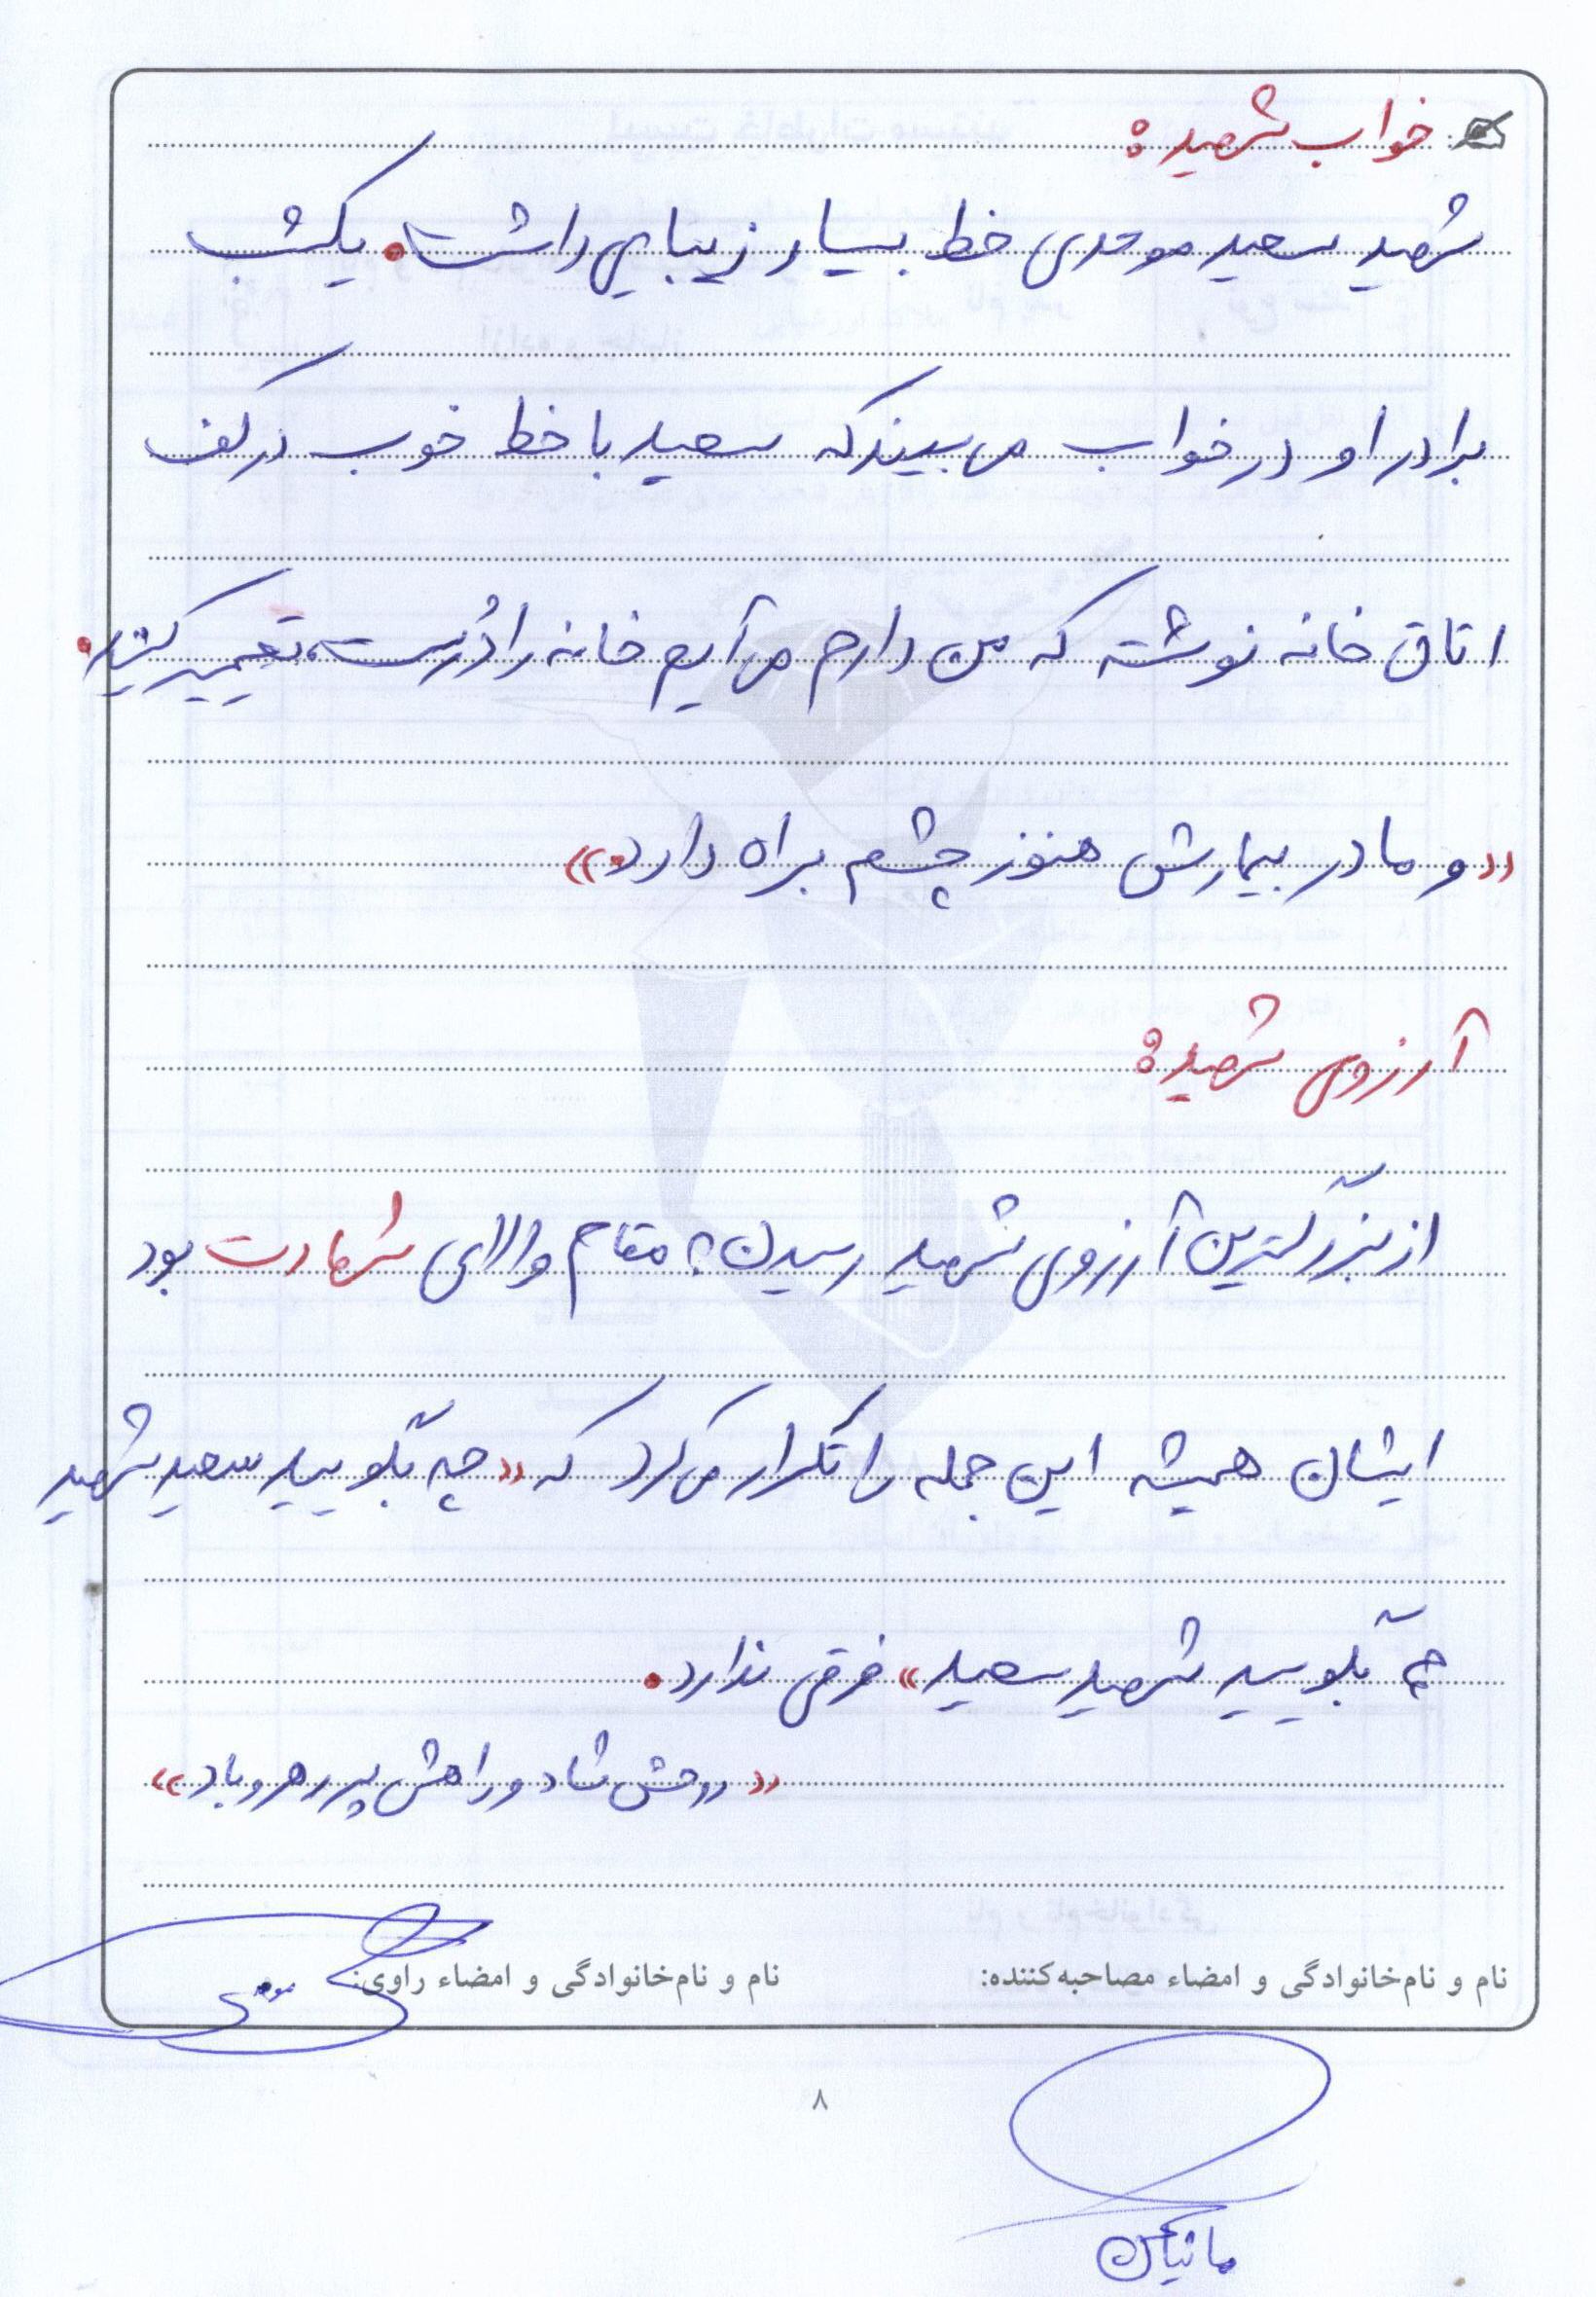 خواب شهید:
شهید سعید موحدی خط بسیار زیبایی داشت. یکشب
برادر او در خواب می بیند که سعید با خط خوب در کف
اتاق خانه نوشته که من دارم می آیم خانه را درست تعمیر کنید.
«و مادر بیمارش هنوز چشم براه دارد.»
آرزوی شهید:
از بزرگترین آرزوی شهید رسیدن به مقام والای شهادت بود
ایشان همیشه این جمله را تکرار می کرد که «چه بگویید سعید شهید
چه بگویید شهید سعید» فرقی ندارد.
«روحش شاد و راهش پر رهرو باد»
نام و نام‌خانوادگی و امضاء مصاحبه‌کننده:
نام و نام‌خانوادگی و امضاء راوی:
۸